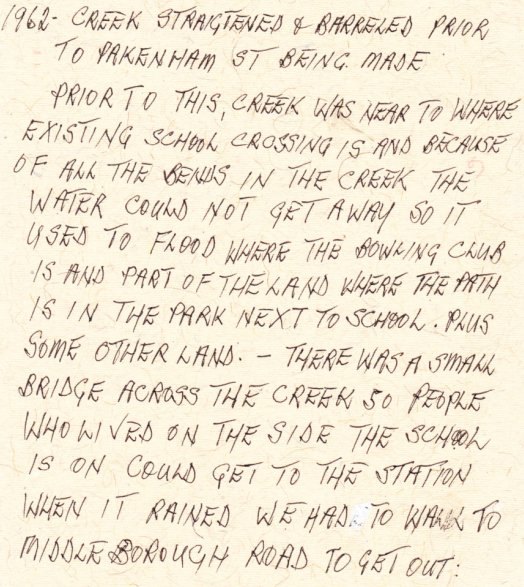 1962- CREEK STRAIGTENED & BARRELED PRIOR
TO PAKENHAM ST BEING MADE
PRIOR TO THIS, CREEK WAS NEAR TO WHERE
EXISTING SCHOOL CROSSING IS AND BECAUSE
OF ALL THE BENDS IN THE CREEK THE
WATER COULD NOT GET AWAY SO IT
USED TO FLOOD WHERE THE BOWLING CLUB
IS AND PART OF THE LAND WHERE THE PATH
IS IN THE PARK NEXT TO SCHOOL. PLUS
SOME OTHER LAND. - THERE WAS A SMALL
BRIDGE ACROSS THE CREEK SO PEOPLE
WHO LIVED ON THE SIDE THE SCHOOL
IS ON COULD GET TO THE STATION
WHEN IT RAINED WE HAD TO WALK TO
MIDDLEBOROUGH ROAD TO GET OUT: